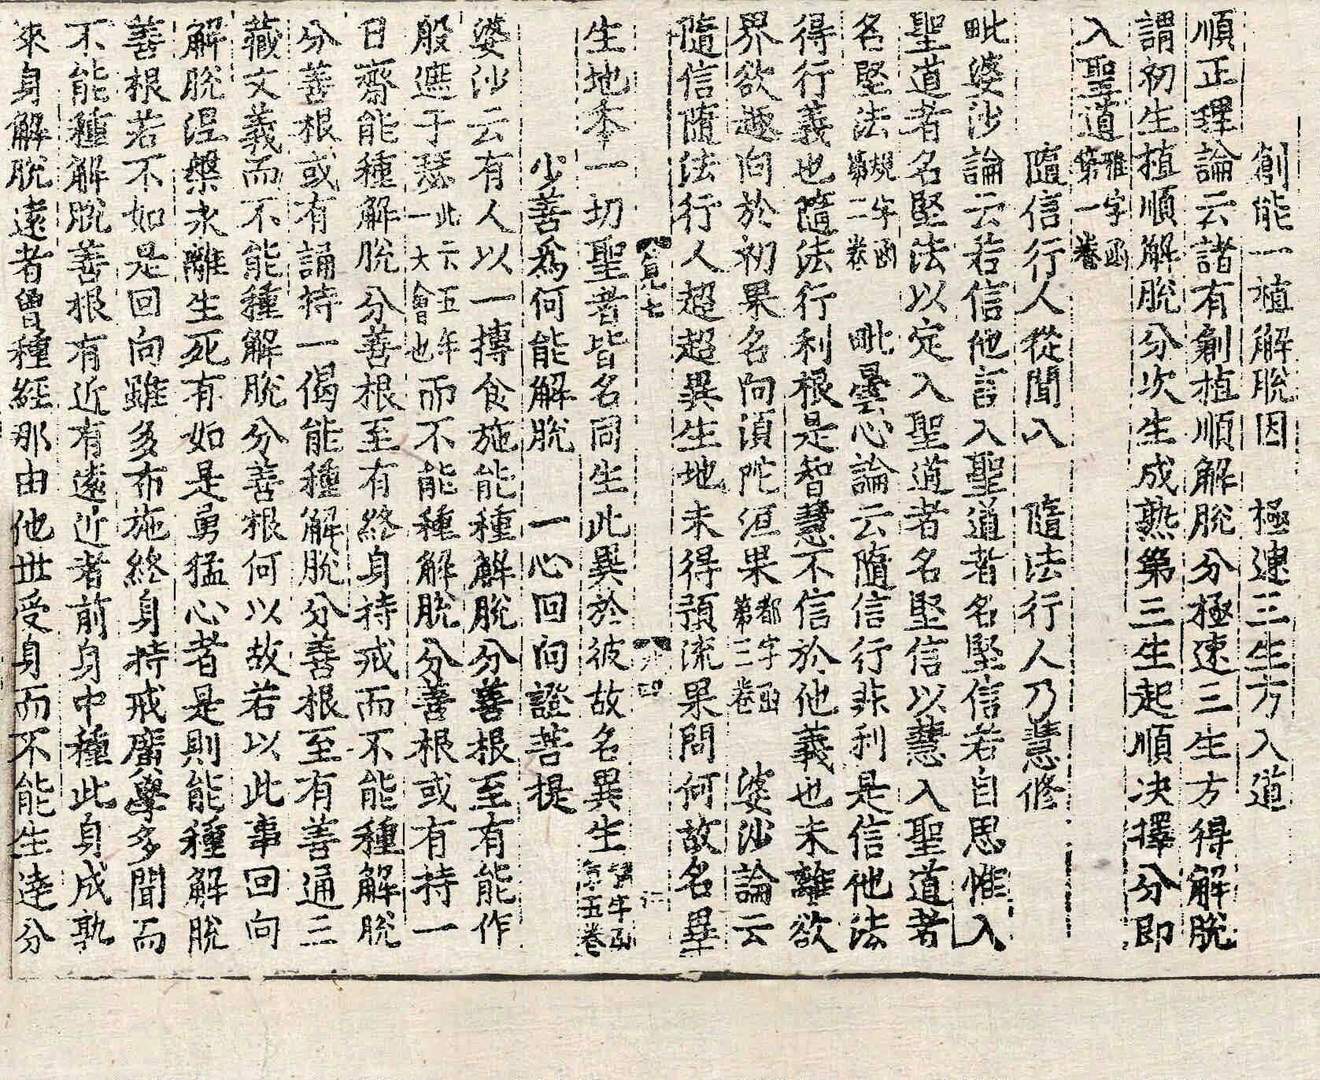 創能一植解脫因　極速三生方入道
順正理論云諸有創植順解脫分極速三生方得解脫
謂初生植順解脫分次生成熟第三生起順決擇分即
入聖道雅字函第一卷
隨信行人從聞入　隨法行人乃慧修
毗婆沙論云若信他言入聖道者名堅信若自思惟入
聖道者名堅法以定入聖道者名堅信以慧入聖道者
名堅法規字函第二卷　毗曇心論云隨信行非利是信他法
得行義也隨法行利根是智慧不信於他義也未離欲
界欲趣向於初果名向須陀洹果都字函第三卷　婆沙論云
隨信隨法行人超越異生地未得預流果問何故名異
生地本一切聖者皆名同生此異於彼故名異生字函第五卷
少善為何能解脫　一心回向證菩提
婆沙云有人以一摶食施能種解脫分善根至有能作
般遮于瑟此云五年一大會也而不能種解脫分善根或有持一
日齋能種解脫分善根至有終身持戒而不能種解脫
分善根或有誦持一偈能種解脫分善根至有善通三
藏文義而不能種解脫分善根何以故若以此事回向
解脫涅槃永離生死有如是勇猛心者是則能種解脫
善根若不如是回向雖多布施終身持戒廣學多聞而
不能種解脫善根有近有遠近者前身中種此身成熟
來身解脫遠者曾種經那由他世受身而不能生達分